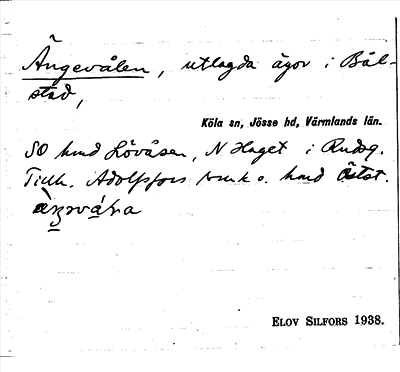 Ängevålen, utlagda ägor i Bål-
stad,
Köla sn, Jösse hd, Värmlands län.
SO hmd Lövåsen, N Haget i Rudsg.
Tillh. Adolfsfors bruk o. hmd
ELOV SILFORS 1938.